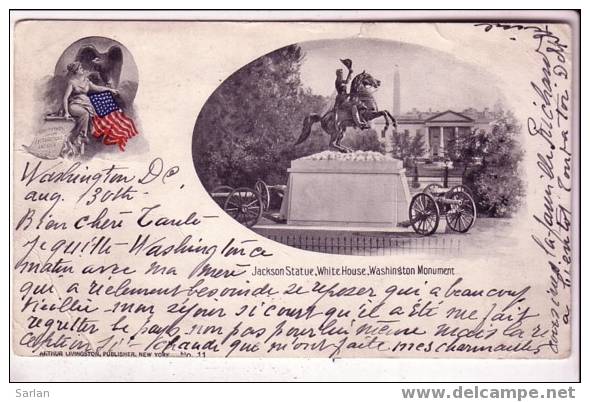 Washington D.C.
aug. 30th
Bien chère Tante
Je quitte Washington ce
matin avec ma mère
Jackson Statue, White House, Washington Monument
qui a réelement besoin de se reposer qui a beaucoup
vieillie mon séjour si court qu'il a été me fait
regretter le pays non pas pour lui même mais la ré
ception si chaude que m'ont faite mes charmantes
ARTHUR LIVINGSTON, PUBLISHER, NEW YORK No. 11
la famille Richard
à bientôt tout à toi
Sarlan
WWW.DELCAMPE.NET